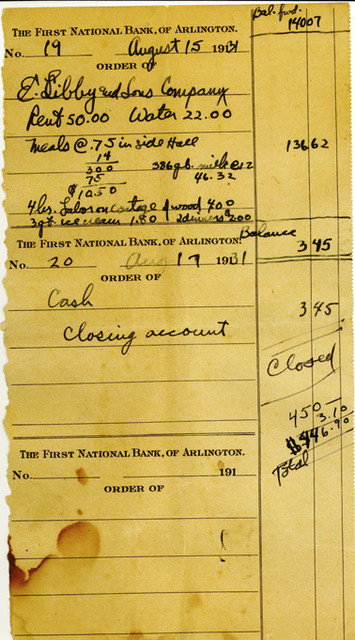 Bal. fwd.
14007
THE FIRST NATIONAL BANK, OF ARLINGTON.
No. 19 August 15 1931
ORDER OF
E. Libby and Sons Company
Rent 50.00 Water 22.00
Meals @ .75 in side Hall 13662
14
300 386 qt. milk @ 12
75 46.32
$10.50
4 hrs. Labor on cartage of wood 4.00
3 qt ice cream 1.80 2 dinners 2.00
Balance
THE FIRST NATIONAL BANK, OF ARLINGTON. 3 45
No. 20 Aug 17 1931
ORDER OF
Cash 3 45
Closing account
Closed
450 —
3.10
$446.90
Total
THE FIRST NATIONAL BANK, OF ARLINGTON.
No. 191
ORDER OF